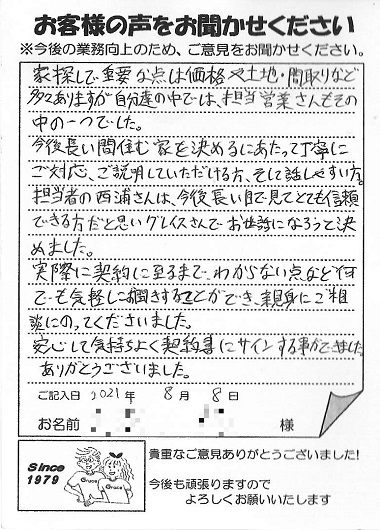 お客様の声をお聞かせください
※今後の業務向上のため、ご意見をお聞かせください。
家探しで重要な点は価格や土地・間取りなど
多々ありますが自分達の中では、担当営業さんもその
中の一つでした。
今後長い間住む家を決めるにあたって丁寧に
ご対応、ご説明していただける方、そして話しやすい方。
担当者の西浦さんは、今後長い目で見てとても信頼
できる方だと思いグレイスさんでお世話になろうと決
めました。
実際に契約に至るまで、わからない点など何
でも気軽にお聞きすることができ、親身にご相
談にのってくださいました。
安心して気持ちよく契約書にサインする事ができました。
ありがとうございました。
ご記入日 2021年 8月 8日
お名前 様
Since
1979
Grace
Grace
貴重なご意見ありがとうございました!
今後も頑張りますので
よろしくお願いいたします